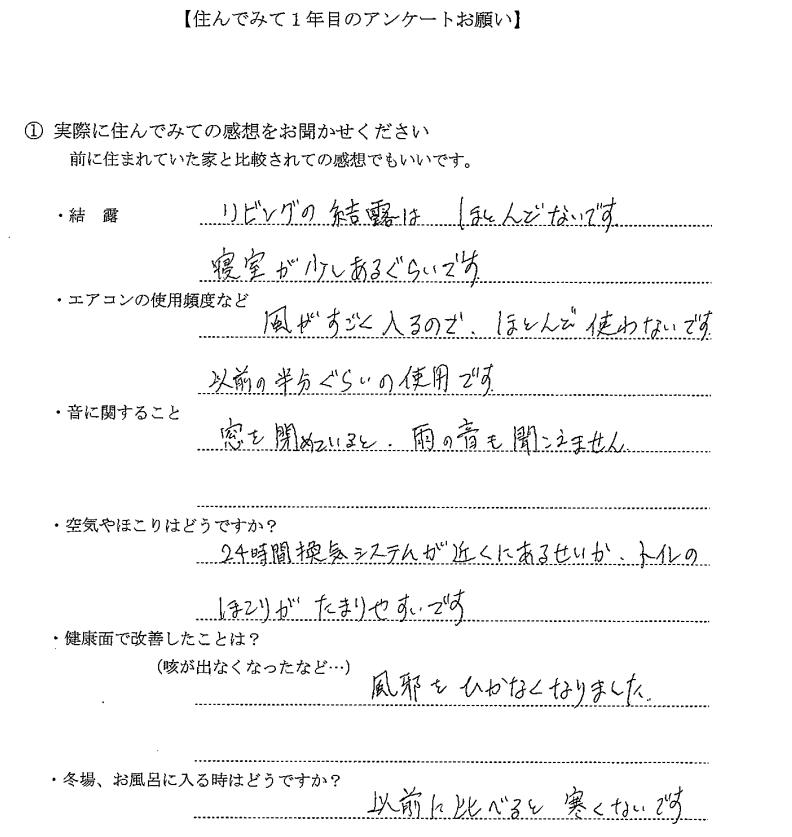 【住んでみて１年目のアンケートお願い】
① 実際に住んでみての感想をお聞かせください
前に住まれていた家と比較されての感想でもいいです。
・結　露
リビングの結露は ほとんどないです
寝室が少しあるぐらいです
・エアコンの使用頻度など
風がすごく入るので、ほとんど使わないです
以前の半分ぐらいの使用です
・音に関すること
窓を閉めていると、雨の音も聞こえません
・空気やほこりはどうですか？
24時間換気システムが近くにあるせいか、トイレの
ほこりが たまりやすいです
・健康面で改善したことは？
（咳が出なくなったなど…）
風邪をひかなくなりました。
・冬場、お風呂に入る時はどうですか？
以前に比べると 寒くないです